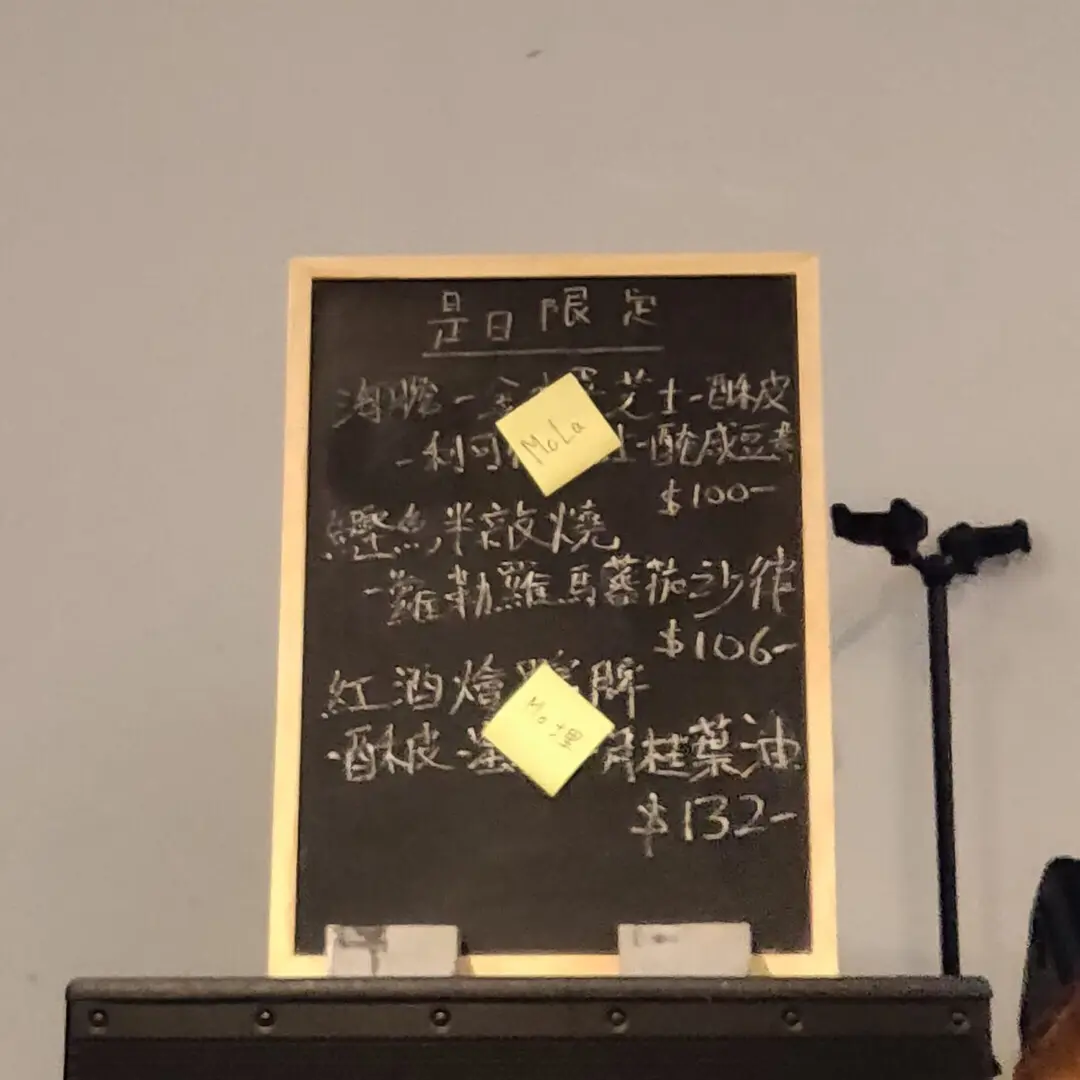 是日限定
海膽-金 芝士-酥皮
MoLa
-利可 士-醃咸豆煮
$100-
鰹魚半敲燒
-羅勒羅馬蕃茄沙律
$106-
紅酒燴 脾
Mo埋
·酥皮· 月桂葉油
$132-